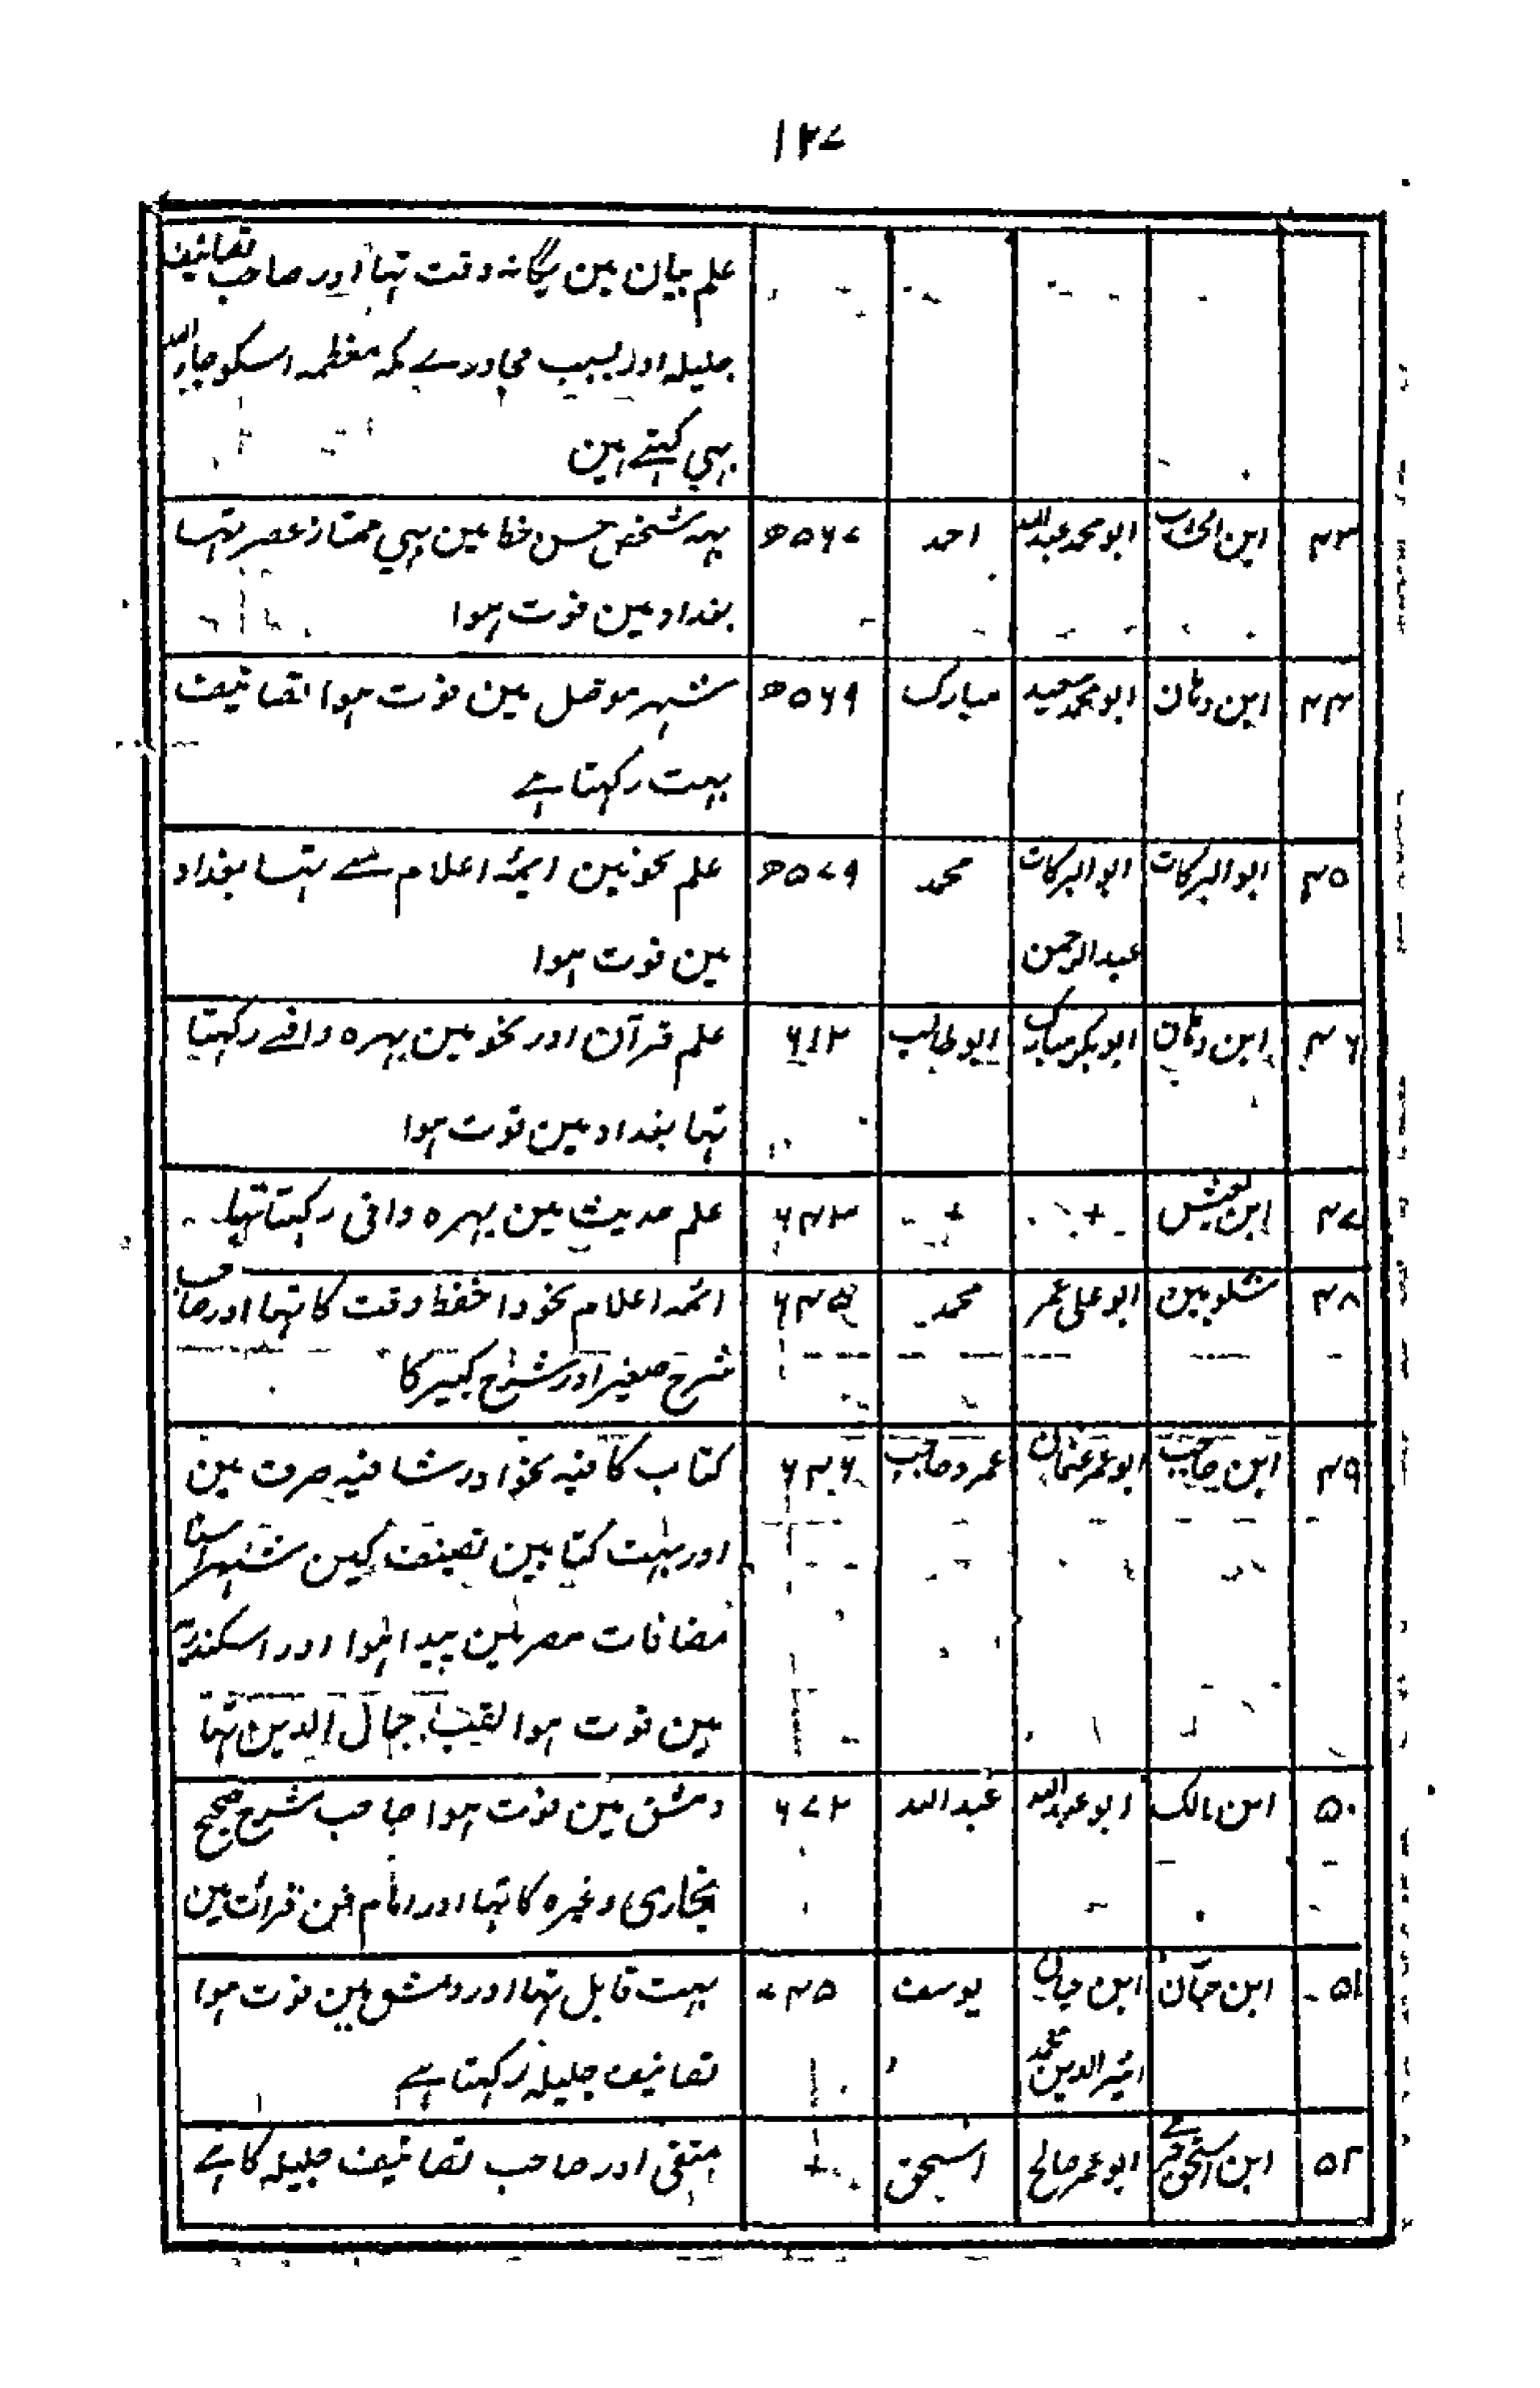 ۱۲۷
علم بیان مین یگانہ وقت تہا اور صاحب تصانیف
جلیلہ اور بسبب مجاورے مکہ معظمہ اسکو جار اللہ
بہی کہتے ہین
۴۳ ابن الخشاب ابو محمد عبداللہ احمد ۵۶۷ھ یہہ شخص حسن خط مین بہی ممتاز عصر تہا
بغداد مین فوت ہوا
۴۴ ابن دہان ابو محمد سعید مبارک ۵۶۹ھ شہر موصل مین فوت ہوا تصانیف
بہت رکہتا ہے
۴۵ ابو البرکات ابو البرکات محمد ۵۷۹ھ علم نحو مین ایمۂ اعلام سے تہا بغداد
عبدالرحمن مین فوت ہوا
۴۶ ابن دہان ابو بکر مبارک ابو طالب ۶۱۲ علم قرآن اور نحو مین بہرہ وافے رکہتا
تہا بغداد مین فوت ہوا
۴۷ ابن یعیش + + ۶۴۳ علم حدیث مین بہرہ وافی رکہتا تہا
۴۸ شلوبین ابو علی عمر محمد ۶۴۵ ائمہ اعلام نحو و احفظ وقت کا تہا اور صاحب
شرح صغیر اور شرح کبیر کا
۴۹ ابن حاجب ابو عمر عثمان عمر و حاجب ۶۴۶ کتاب کافیہ نحو اور شافیہ صرف مین
اور بہت کتابین تصنیف کین شہر اسنا
مضافات مصر مین پیدا ہوا اور اسکندریہ
مین فوت ہوا لقب جمال الدین تہا
۵۰ ابن مالک ابو عبداللہ عبداللہ ۶۷۲ دمشق مین فوت ہوا صاحب شرح صحیح
بخاری وغیرہ کا تہا اور امام فن قرات مین
۵۱ ابن حیان ابن حیان یوسف ۷۴۵ بہت قابل تہا اور دمشق مین فوت ہوا
اثیر الدین محمد تصانیف جلیلہ رکہتا ہے
۵۲ ابن اسحق ابو عمر صالح اسحق + متقی اور صاحب تصانیف جلیلہ کا ہے